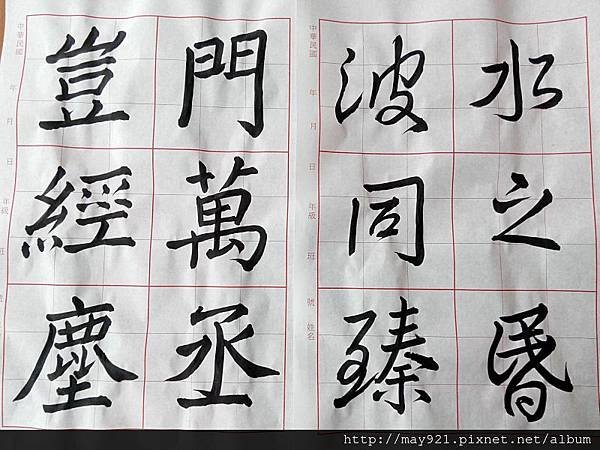 水之昬
波同臻
中華民國 年 月 日 年級 班 號 姓名
門萬丞
豈經塵
中華民國 年 月 日 年級 班
http://may921.pixnet.net/album